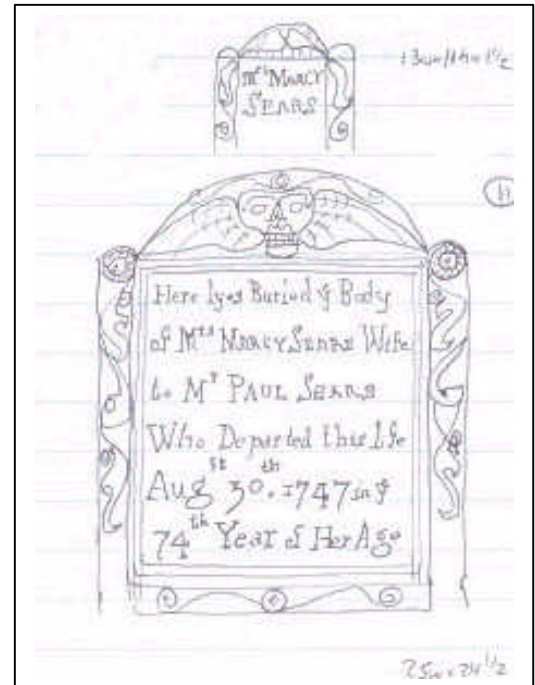 Mrs MARCY
SEARS
Here lyes Buried ye Body
of Mrs MARCY SEARS Wife
to Mr PAUL SEARS
Who Departed this Life
Augst 30th. 1747 in ye
74th Year of Her Age
25w x 24 1/2